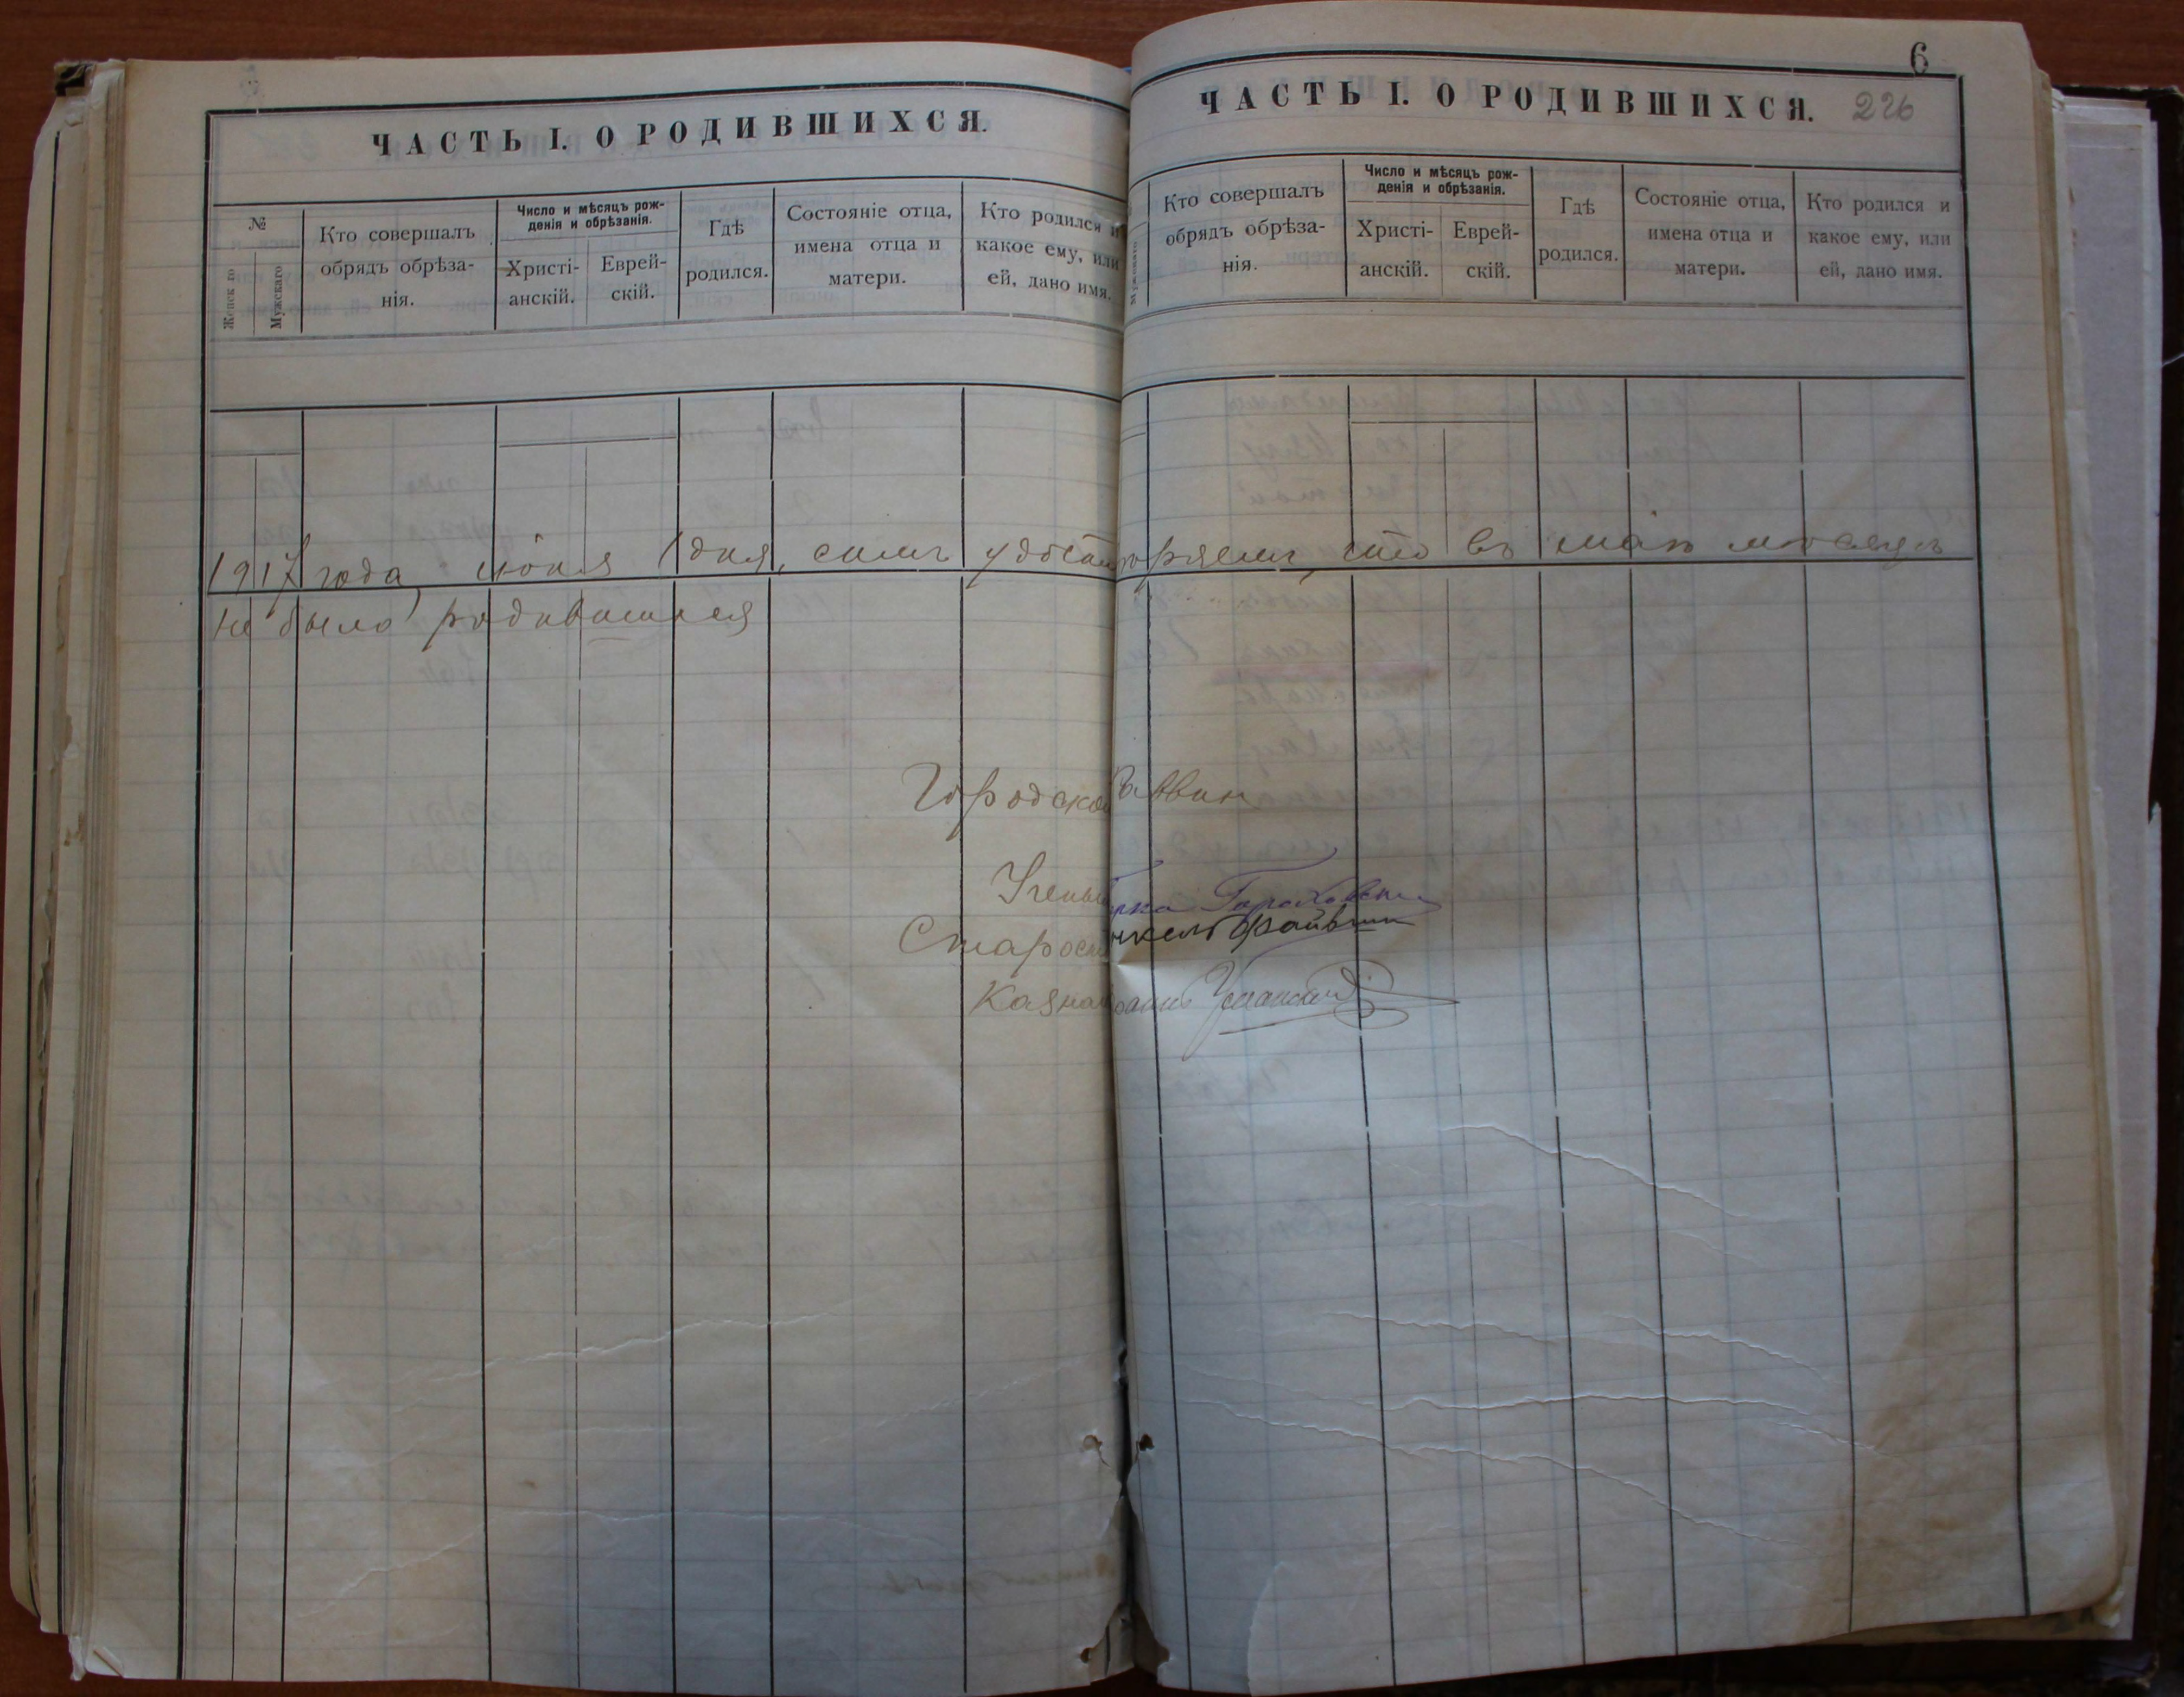 ЧАСТЬ I. О РОДИВШИХСЯ.
№
Женск го
Мужскаго
Кто совершалъ
обрядъ обрѣза-
нія.
Число и мѣсяцъ рож-
денія и обрѣзанія.
Христі-
анскій.
Еврей-
скій.
Гдѣ
родился.
Состояніе отца,
имена отца и
матери.
Кто родился и
какое ему, или
ей, дано имя.
6
ЧАСТЬ I. О РОДИВШИХСЯ. 226
Мужскаго
Кто совершалъ
обрядъ обрѣза-
нія.
Число и мѣсяцъ рож-
денія и обрѣзанія.
Христі-
анскій.
Еврей-
скій.
Гдѣ
родился.
Состояніе отца,
имена отца и
матери.
Кто родился и
какое ему, или
ей, дано имя.
1917 года, іюня 1 дня, симъ удостоворяемъ, что въ маѣ мѣсяцѣ
не было родившихся
Городской Раввин
Учены
Старос
Казнач